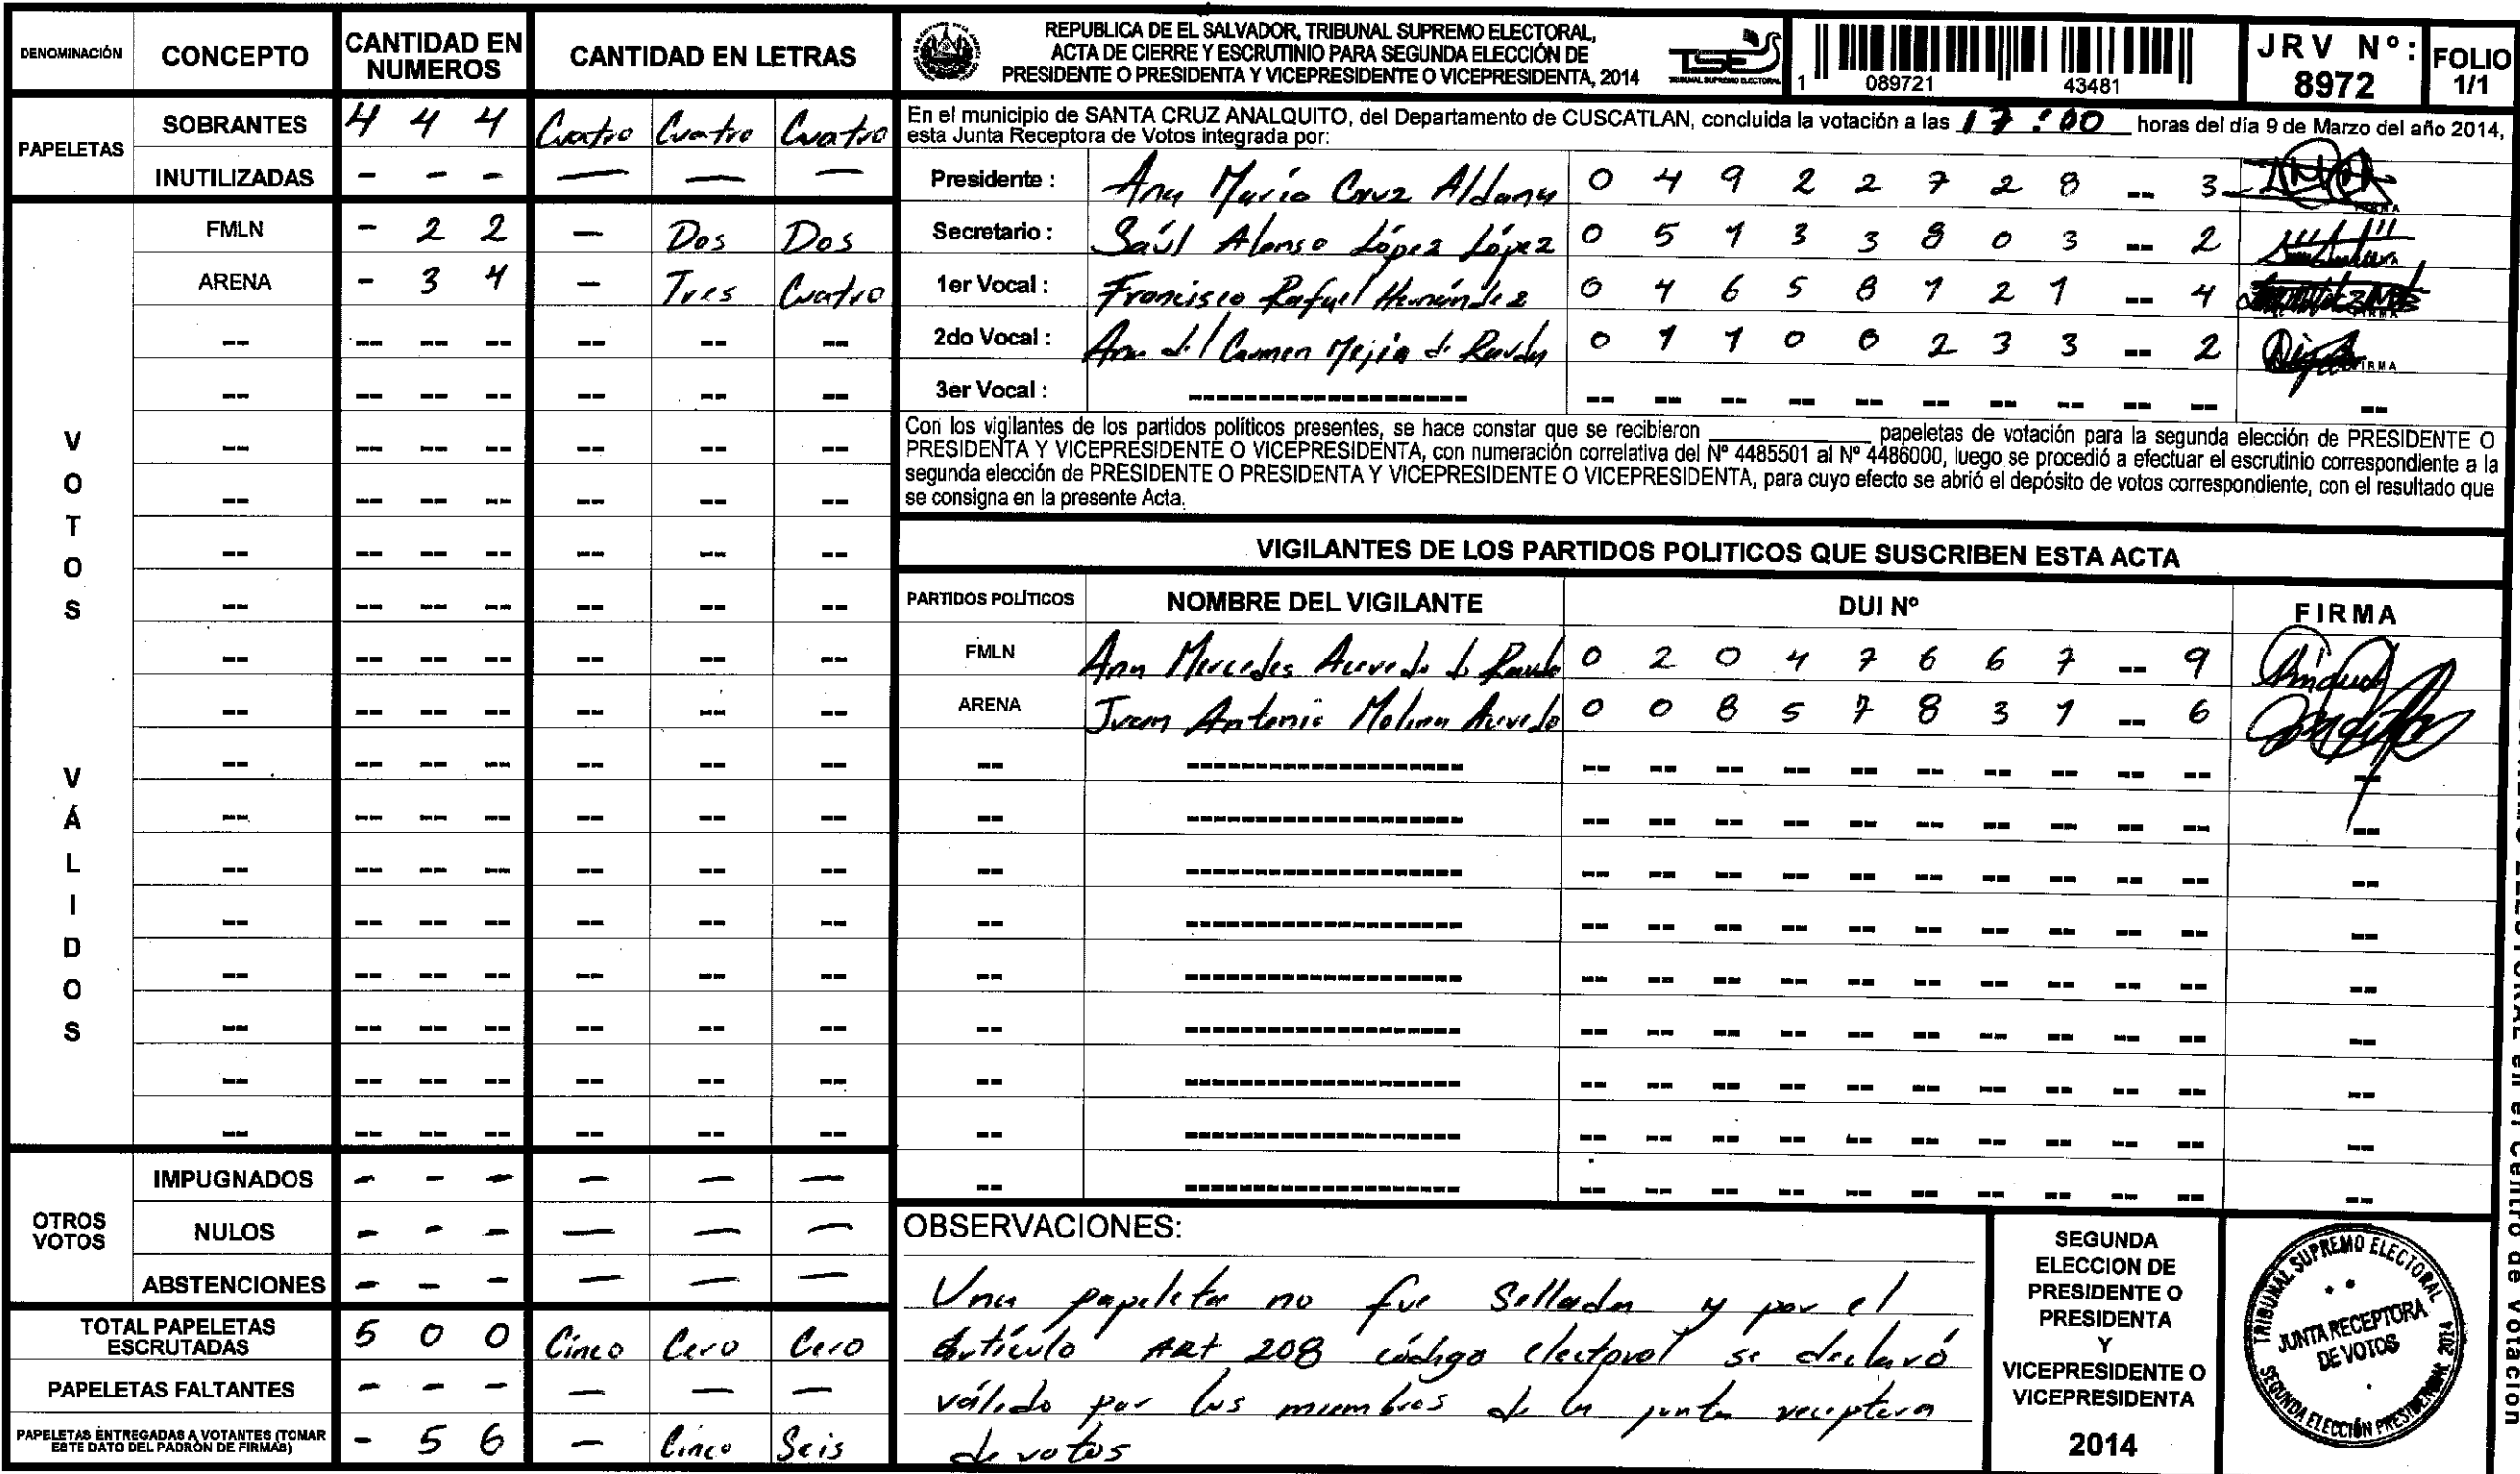 DENOMINACIÓN CONCEPTO CANTIDAD EN NUMEROS CANTIDAD EN LETRAS
PAPELETAS
SOBRANTES 4 4 4 Cuatro Cuatro Cuatro
INUTILIZADAS - - - — — —
VOTOS VÁLIDOS
FMLN - 2 2 — Dos Dos
ARENA - 3 4 — Tres Cuatro
OTROS VOTOS
IMPUGNADOS - - - — — —
NULOS - - - — — —
ABSTENCIONES - - - — — —
TOTAL PAPELETAS ESCRUTADAS 5 0 0 Cinco Cero Cero
PAPELETAS FALTANTES - - - — — —
PAPELETAS ENTREGADAS A VOTANTES (TOMAR ESTE DATO DEL PADRÓN DE FIRMAS) - 5 6 — Cinco Seis
REPUBLICA DE EL SALVADOR, TRIBUNAL SUPREMO ELECTORAL,
ACTA DE CIERRE Y ESCRUTINIO PARA SEGUNDA ELECCIÓN DE
PRESIDENTE O PRESIDENTA Y VICEPRESIDENTE O VICEPRESIDENTA, 2014
TSE
TRIBUNAL SUPREMO ELECTORAL
1 089721 43481
JRV Nº: 8972
FOLIO 1/1
En el municipio de SANTA CRUZ ANALQUITO, del Departamento de CUSCATLAN, concluida la votación a las 17:00 horas del día 9 de Marzo del año 2014,
esta Junta Receptora de Votos integrada por:
Presidente : Ana María Cruz Aldana 0 4 9 2 2 7 2 8 -- 3
Secretario : Saúl Alonso López López 0 5 1 3 3 8 0 3 -- 2
1er Vocal : Francisco Rafael Hernández 0 4 6 5 8 1 2 1 -- 4
2do Vocal : Ana del Carmen Mejía de 0 1 1 0 0 2 3 3 -- 2
3er Vocal :
Con los vigilantes de los partidos políticos presentes, se hace constar que se recibieron ____ papeletas de votación para la segunda elección de PRESIDENTE O
PRESIDENTA Y VICEPRESIDENTE O VICEPRESIDENTA, con numeración correlativa del Nº 4485501 al Nº 4486000, luego se procedió a efectuar el escrutinio correspondiente a la
segunda elección de PRESIDENTE O PRESIDENTA Y VICEPRESIDENTE O VICEPRESIDENTA, para cuyo efecto se abrió el depósito de votos correspondiente, con el resultado que
se consigna en la presente Acta.
VIGILANTES DE LOS PARTIDOS POLITICOS QUE SUSCRIBEN ESTA ACTA
PARTIDOS POLÍTICOS NOMBRE DEL VIGILANTE DUI Nº FIRMA
FMLN Ana Mercedes Acevedo de 0 2 0 4 7 6 6 7 -- 9
ARENA Juan Antonio Molina Acevedo 0 0 8 5 7 8 3 1 -- 6
OBSERVACIONES:
Una papeleta no fue Sellada y por el
Artículo ART 208 código electoral se declaró
válido por los miembros de la junta receptora
de votos
SEGUNDA
ELECCION DE
PRESIDENTE O
PRESIDENTA
Y
VICEPRESIDENTE O
VICEPRESIDENTA
2014
TRIBUNAL SUPREMO ELECTORAL
JUNTA RECEPTORA
DE VOTOS
SEGUNDA ELECCIÓN PRESIDENCIAL 2014
ELECTORAL en el Centro de Votación